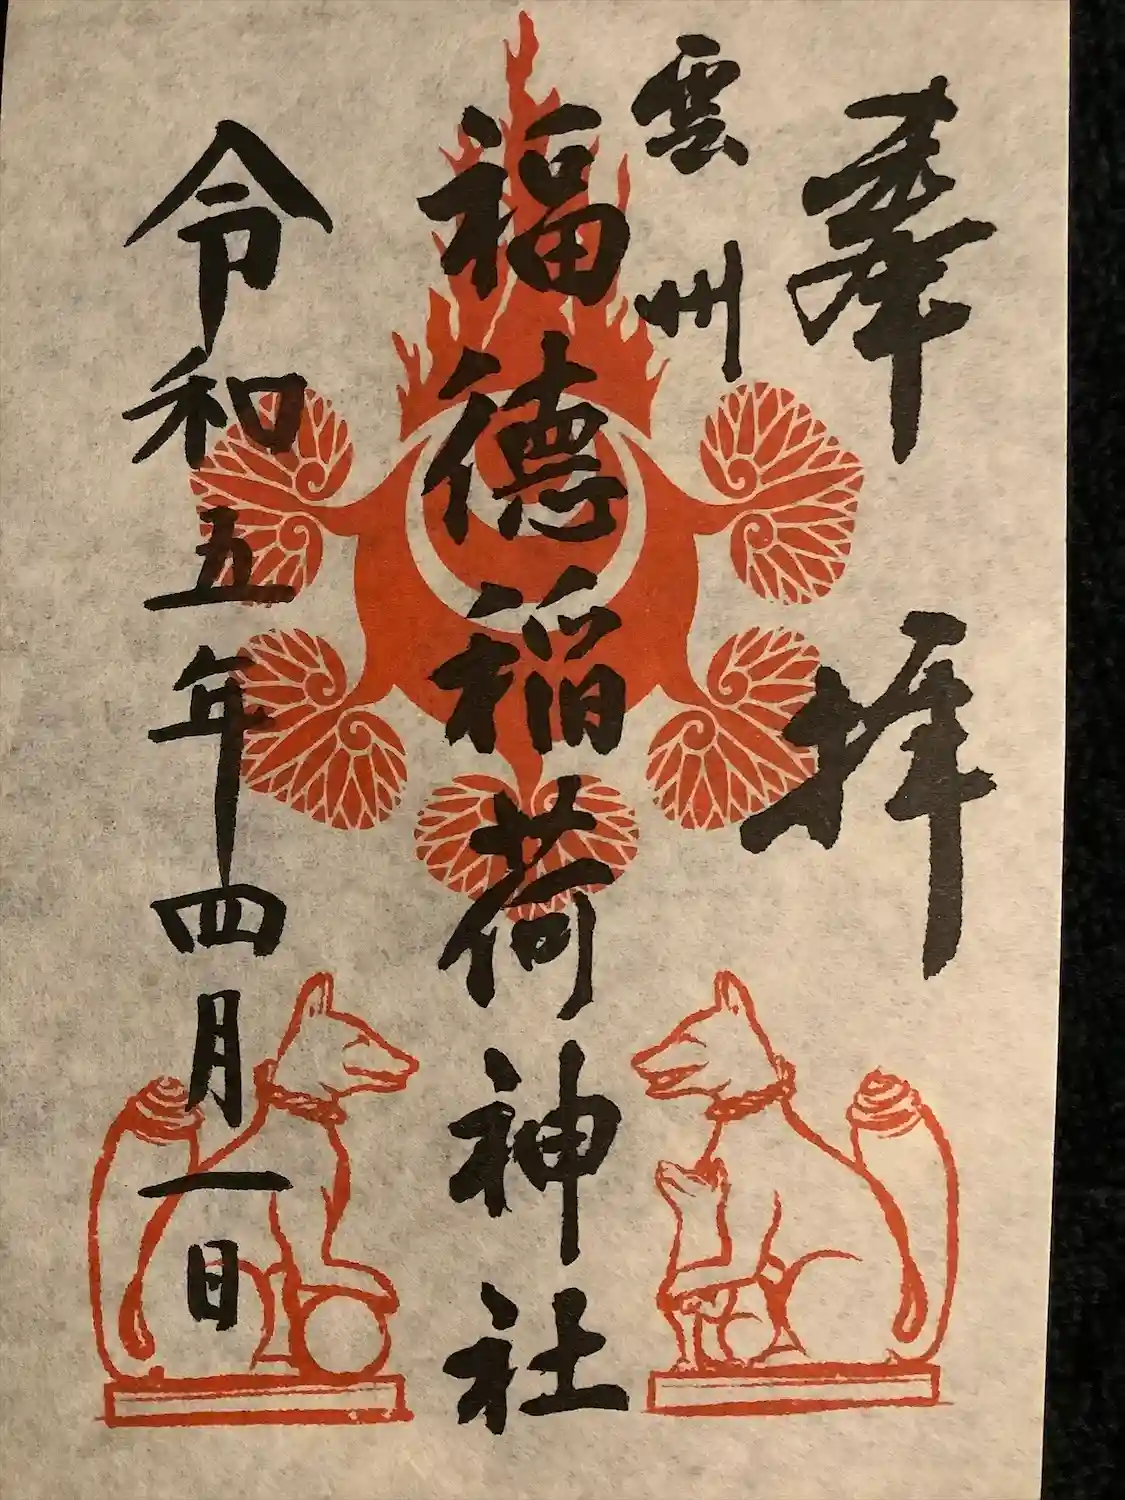 奉拝
雲州
福德稲荷神社
令和五年四月一日